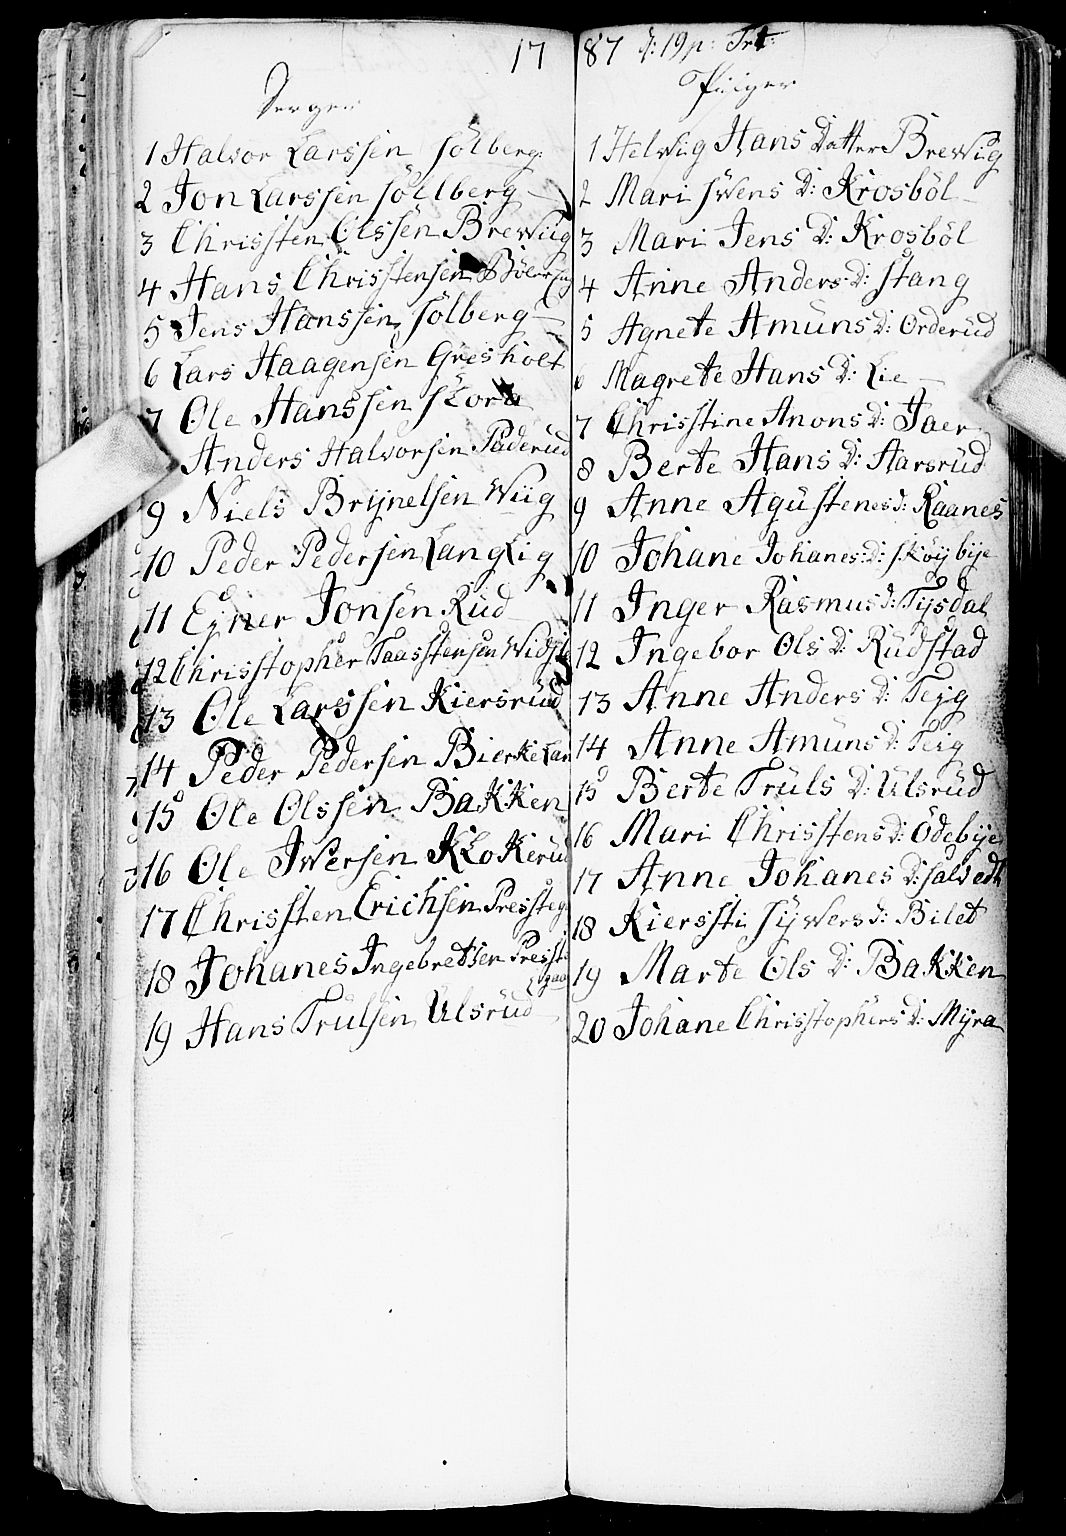 1787 d: 19 p: Trt:
Drenger
1 Halvor Larssen Sölberg
2 Jon Larssen Söllberg
3 Christen Olssen Brewiig
4 Hans Christensen
5 Jens Hanssen Sölberg
6 Lars Haagensen Gresholt
7 Ole Hanssen
Anders Halvorsen Paderud
9 Niels Brynelsen Wiig
10 Peder Pedersen Langlig
11 Ejner Jonsen Rud
12 Christopher Taasstensen
13 Ole Larssen Kiersrud
14 Peder Pedersen Bierkelan
15 Ole Olssen Bakken
16 Ole Iversen Klokerud
17 Christen Erichsen Pressteg
18 Johanes Ingebretsen Presste gaar
19 Hans Trulsen Ulsrud
Piiger
1 Helwiig Hans Datter Brewiig
2 Mari Swens D: Krosböl
3 Mari Jens D: Krosböl
4 Anne Anders D: Stang
5 Agnete Amuns D: Orderud
6 Magrete Hans D: Lie
7 Christine Anons D: Jaer
8 Berte Hans D: Aarsrud
9 Anne Agustenes D: Raanes
10 Johane Johanes D: Skøybye
11 Inger Rasmus D: Tysdal
12 Ingebor Ols D: Rudstad
13 Anne Anders D: Tejg
14 Anne Amuns D: Teig
15 Berte Truls D: Ulsrud
16 Mari Christens D: Ödebye
17 Anne Johanes D: Salvedt
18 Kiersti Sywers D: Bilet
19 Marte Ols D: Bakken
20 Johane Christophers D: Myra